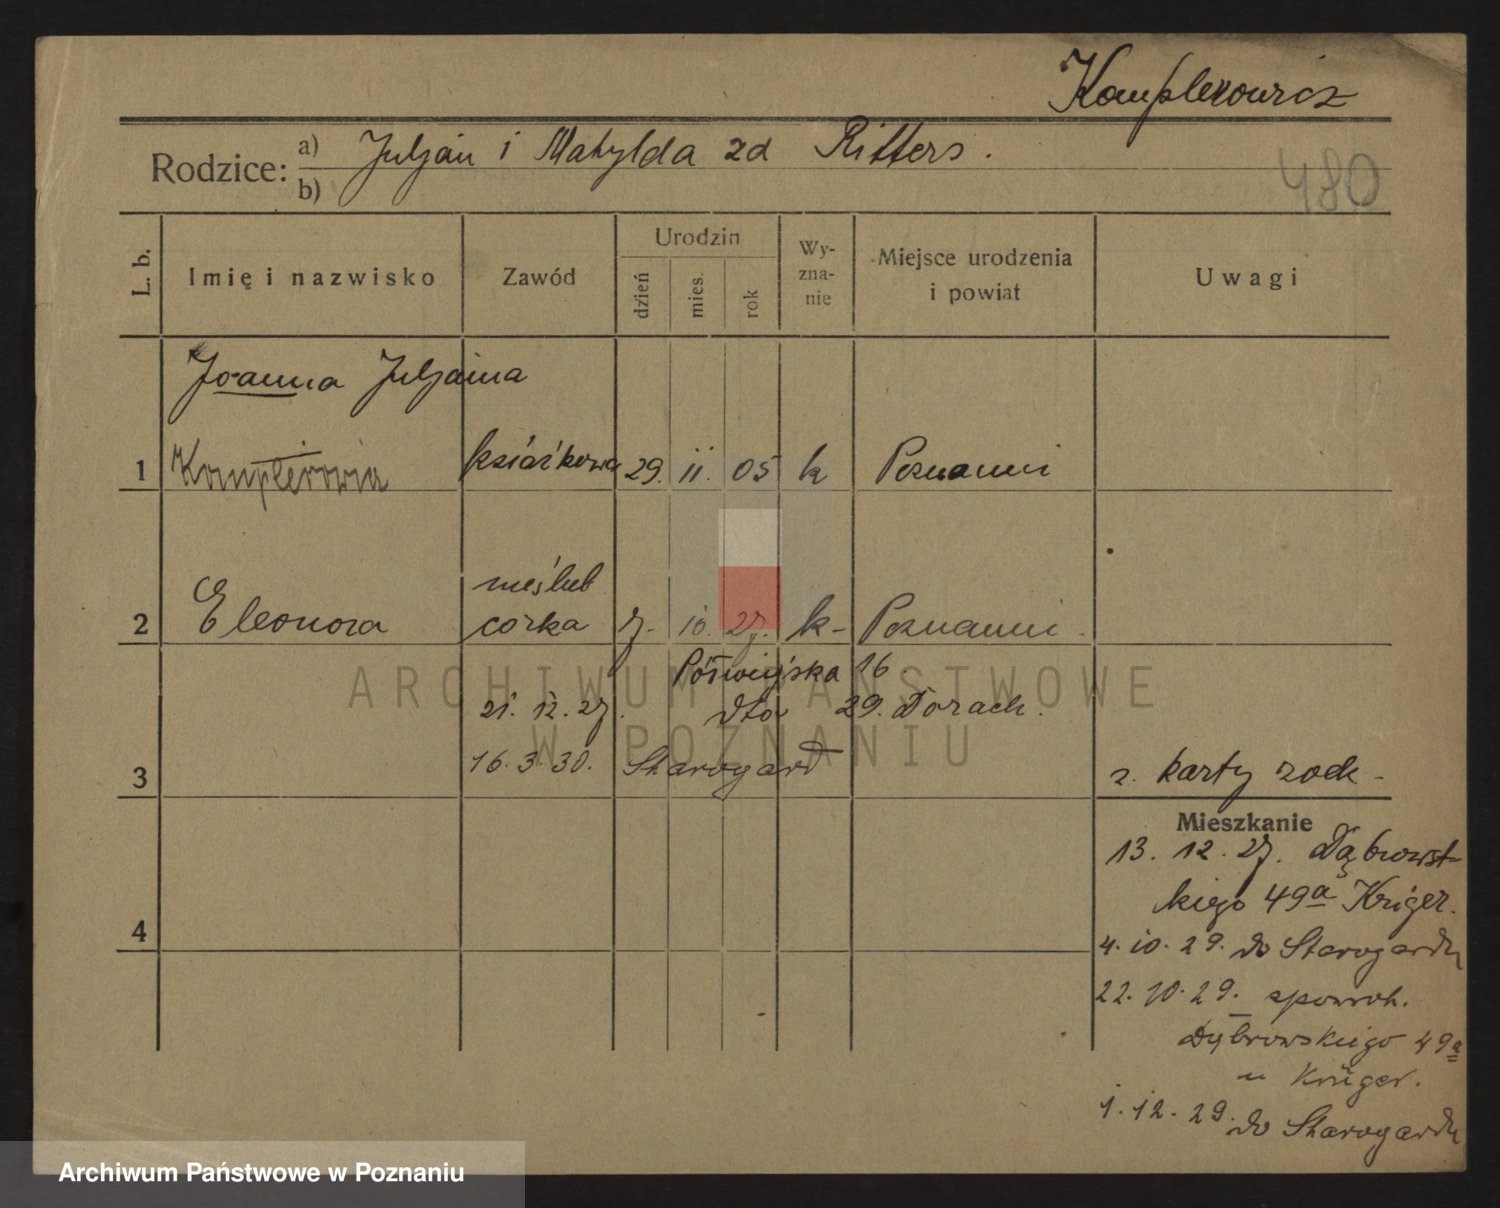 Komplerowicz
Rodzice:
a) Juljan i Matylda zd Ritters.
b)
480
L. b.
Imię i nazwisko
Zawód
Urodzin
dzień
mies.
rok
Wy-
zna-
nie
Miejsce urodzenia
i powiat
Uwagi
Joanna Juljanna
1
książkowa 29. 11. 05 k Poznaniu
nieślub
2 Eleonora córka 7. 10. 27. k- Poznaniu.
Półwiejska 16.
21. 12. 27. dto 29. Dorach.
16. 3. 30. Starogard
3
z. karty rodz.
Mieszkanie
13. 12. 27. Dąbrows-
kiego 49a Krüger.
4
4. 10. 29. do Starogardu
22. 10. 29. zpowroh.
Dąbrowskiego 49a
u Krüger.
1. 12. 29. do Starogardu
ARCHIWUM PAŃSTWOWE
W POZNANIU
Archiwum Państwowe w Poznaniu